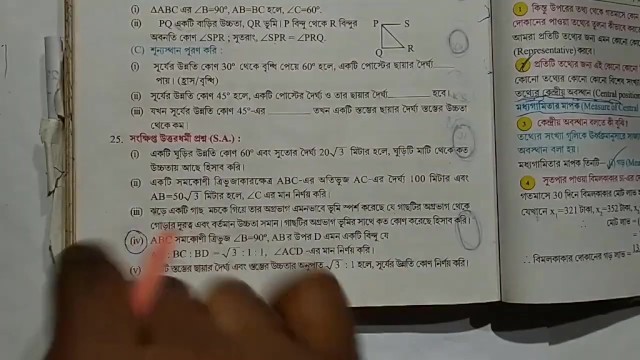 (i) ΔABC এর ∠B=90°, AB=BC হলে, ∠C=60°.
(ii) PQ একটি বাড়ির উচ্চতা, QR ভূমি। P বিন্দু থেকে R বিন্দুর
অবনতি কোণ ∠SPR ; সুতরাং, ∠SPR = ∠PRQ.
P S
Q R
(C) শূন্যস্থান পূরণ করি :
(i) সূর্যের উন্নতি কোণ 30° থেকে বৃদ্ধি পেয়ে 60° হলে, একটি পোস্টের ছায়ার দৈর্ঘ্য
পায়। (হ্রাস/বৃদ্ধি)
(ii) সূর্যের উন্নতি কোণ 45° হলে, একটি পোস্টের দৈর্ঘ্য ও তার ছায়ার দৈর্ঘ্য ______ হবে।
(iii) যখন সূর্যের উন্নতি কোণ 45°-এর ______ তখন একটি স্তম্ভের ছায়ার দৈর্ঘ্য স্তম্ভের উচ্চতা
থেকে কম।
25. সংক্ষিপ্ত উত্তরধর্মী প্রশ্ন (S.A.) :
(i) একটি ঘুড়ির উন্নতি কোণ 60° এবং সুতোর দৈর্ঘ্য 20√3 মিটার হলে, ঘুড়িটি মাটি থেকে কত
উচ্চতায় আছে হিসাব করি।
(ii) একটি সমকোণী ত্রিভুজাকারক্ষেত্র ABC-এর অতিভুজ AC-এর দৈর্ঘ্য 100 মিটার এবং
AB=50√3 মিটার হলে, ∠C এর মান নির্ণয় করি।
(iii) ঝড়ে একটি গাছ মচকে গিয়ে তার অগ্রভাগ এমনভাবে ভূমি স্পর্শ করেছে যে গাছটির অগ্রভাগ থেকে
গোড়ার দূরত্ব এবং বর্তমান উচ্চতা সমান। গাছটির অগ্রভাগ ভূমির সাথে কত কোণ করেছে হিসাব করি।
(iv) ABC সমকোণী ত্রিভুজ ∠B=90°, AB র উপর D এমন একটি বিন্দু যে
: BC : BD = √3 : 1 : 1, ∠ACD -এর মান নির্ণয় করি।
(v) স্তম্ভের ছায়ার দৈর্ঘ্য এবং স্তম্ভের উচ্চতার অনুপাত √3 : 1 হলে, সূর্যের উন্নতি কোণ নির্ণয় করি।
1 কিন্তু উপরের তথ্য থেকে
দোকানের পাওয়া তথ্যের
আমরা প্রতিটি তথ্যের জন্য এমন কোনো
(Representative) করবে।
প্রতিটি তথ্যের জন্য এই কোনো
কোনো তথ্যের কোনো বিশেষ
তথ্যের কেন্দ্রীয় অবস্থান (Central
মধ্যগামিতার মাপক (Measure of
3 কেন্দ্রীয় অবস্থান বলতে কী বুঝি?
তথ্যের সংখ্যা গুলিকে
অবস্থান বলা হয়।
মধ্যগামিতার মাপক তিনটি– (i) গড়
4
গতমাসে 30 দিনে বিমলকাকার মোট
যেখানে x₁=321 টাকা, x₂=352 টাকা,
∴ মোট লাভ =
∴ বিমলকাকার দোকানের গড় লাভ =